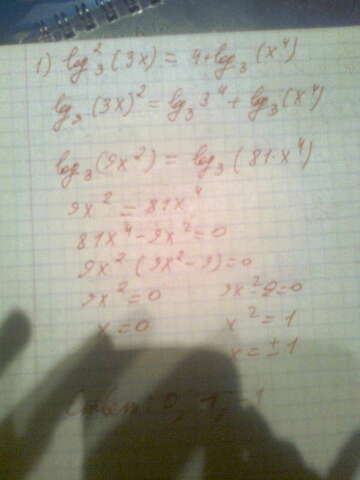 1) log₃²(3x) = 4+log₃(x⁴)
log₃(3x)² = log₃3⁴ + log₃(x⁴)
log₃(9x²) = log₃(81·x⁴)
9x² = 81x⁴
81x⁴-9x²=0
9x²(9x²-9)=0
9x²=0 9x²-9=0
x=0 x²=1
x=±1
Ответ: 0, 1, -1